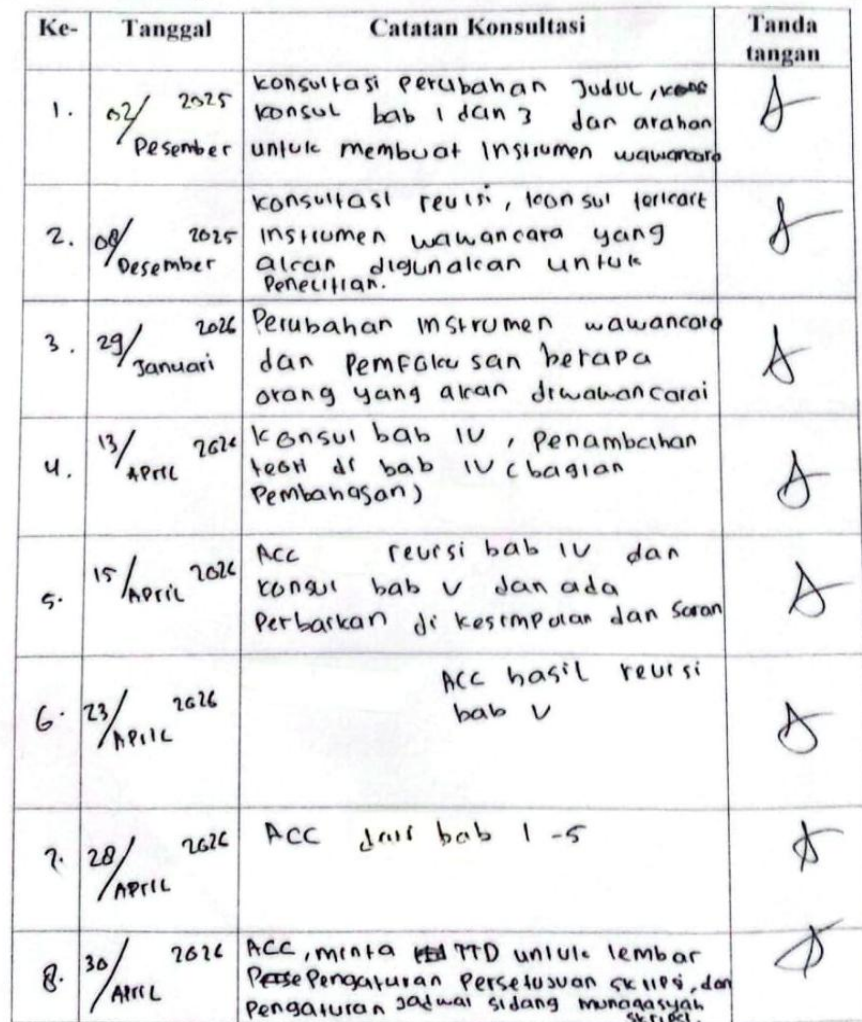 Ke- Tanggal Catatan Konsultasi Tanda
tangan
1. 02/ 2025 Desember konsultasi perubahan Judul,
konsul bab 1 dan 3 dan arahan
untuk membuat instrumen wawancara
2. 08/ 2025 Desember konsultasi revisi, konsul terkait
instrumen wawancara yang
akan digunakan untuk
Penelitian.
3. 29/ 2026 Januari Perubahan instrumen wawancara
dan Pemfokusan berapa
orang yang akan diwawancarai
4. 13/ 2026 April Konsul bab IV, Penambahan
teori di bab IV (bagian
Pembahasan)
5. 15/ 2026 April Acc revisi bab IV dan
konsul bab V dan ada
Perbaikan di kesimpulan dan Saran
6. 23/ 2026 April ACC hasil revisi
bab V
7. 28/ 2026 April ACC dari bab 1-5
8. 30/ 2026 April ACC, minta TTD untuk lembar
Pengaturan Persetujuan skripsi, dan
Pengaturan jadwal sidang munaqasyah
skripsi.